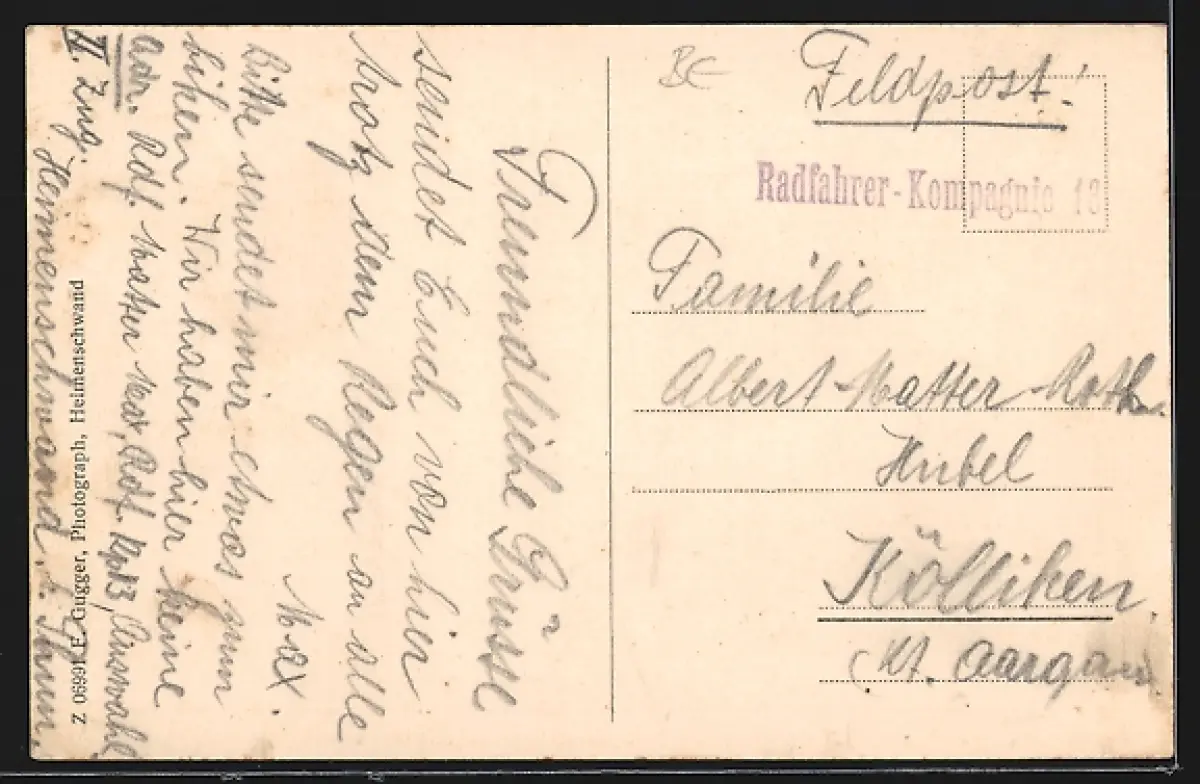 Freundliche Grüsse
sendet Euch von hier
trotz dem Regen an alle
Max.
Bitte sendet mir etwas zum
. Wir haben hier keine
adr. Rdf. Matter Max, Rdf. Kp.
II. Zug.
Heimenschwand b. Thun.
Z 06991 E. Gugger, Photograph, Heimenschwand
BE
Feldpost!
Radfahrer-Kompagnie 13
Familie
Albert Matter-Roth
Hubel
Kölliken.
Kt. Aargau